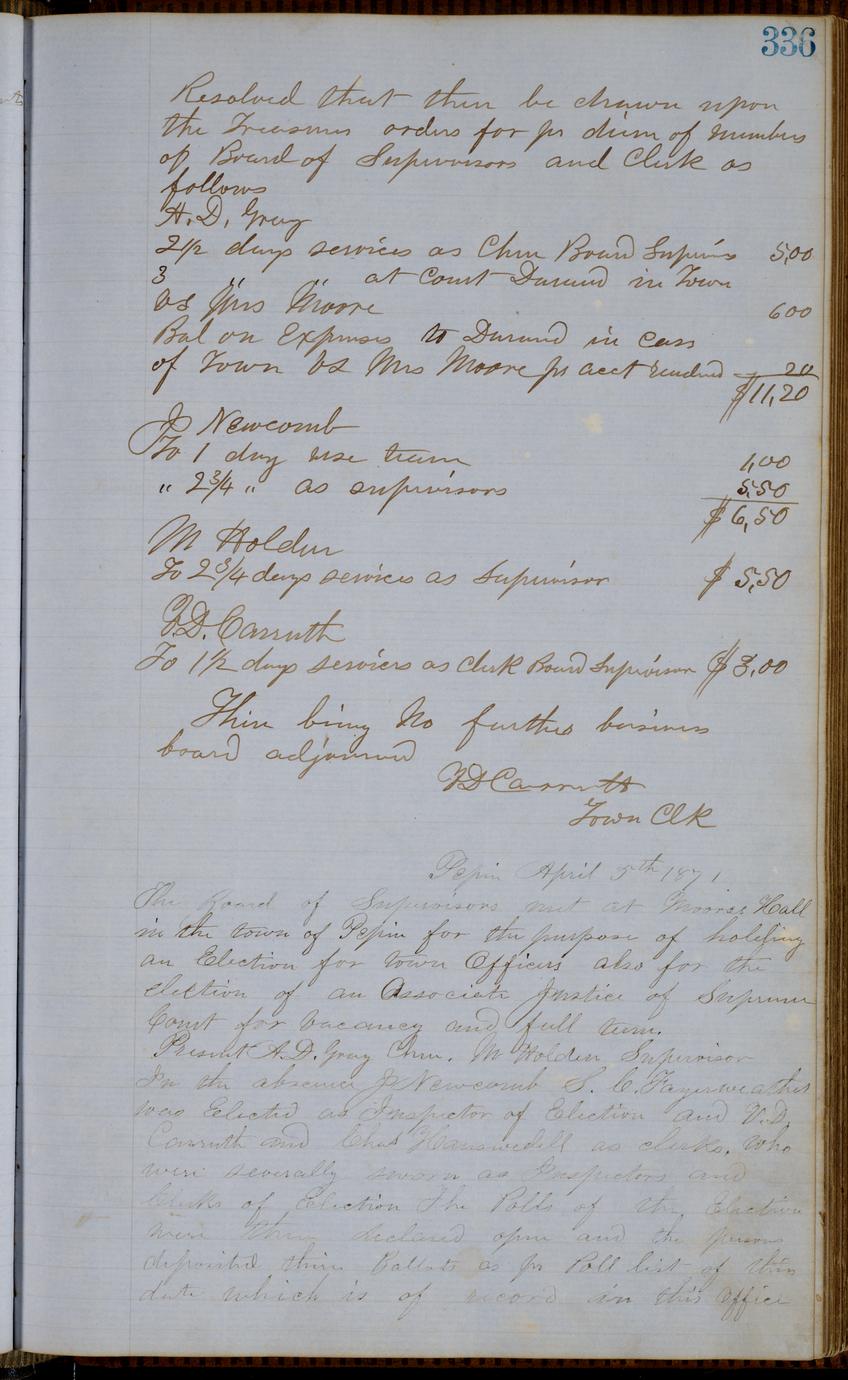 336
Resolved that there be drawn upon
the Treasurer orders for pr diem of members
of Board of Supervisors and Clerk as
follows
A. D. Gray
2 1/2 days services as Chm Board Supervis 5,00
3 " " at Court Durand in Town
VS Mrs Moore 600
Bal on Expenses to Durand in case
of Town VS Mrs Moore pr acct rendered 20
$11,20
J Newcomb
To 1 day use team 1,00
" 2 3/4 " as supervisors 5,50
$ 6,50
M Holden
To 2 3/4 days services as Supervisor $ 5,50
V.D. Carruth
To 1 1/2 days services as Clerk Board Supervisor $ 3,00
There being No further business
board adjourned
VD Carruth
Town Clk
Pepin April 5th 1871.
The Board of Supervisors met at Moores Hall
in the town of Pepin for the purpose of holding
an Election for town Officers also for the
election of an Associate Justice of Supreme
Court for vacancy and full term.
Present A. D. Gray Chm. M Holden Supervisor
In the absence J Newcomb S. C. Fayerweather
was Elected as Inspector of Election and V.D.
Carruth and Chas as clerks. Who
were severally sworn as Inspectors and
Clerks of Election The Polls of the Election
were then declared open and the persons
deposited their Ballots as pr Poll list of this
date which is of record in this office